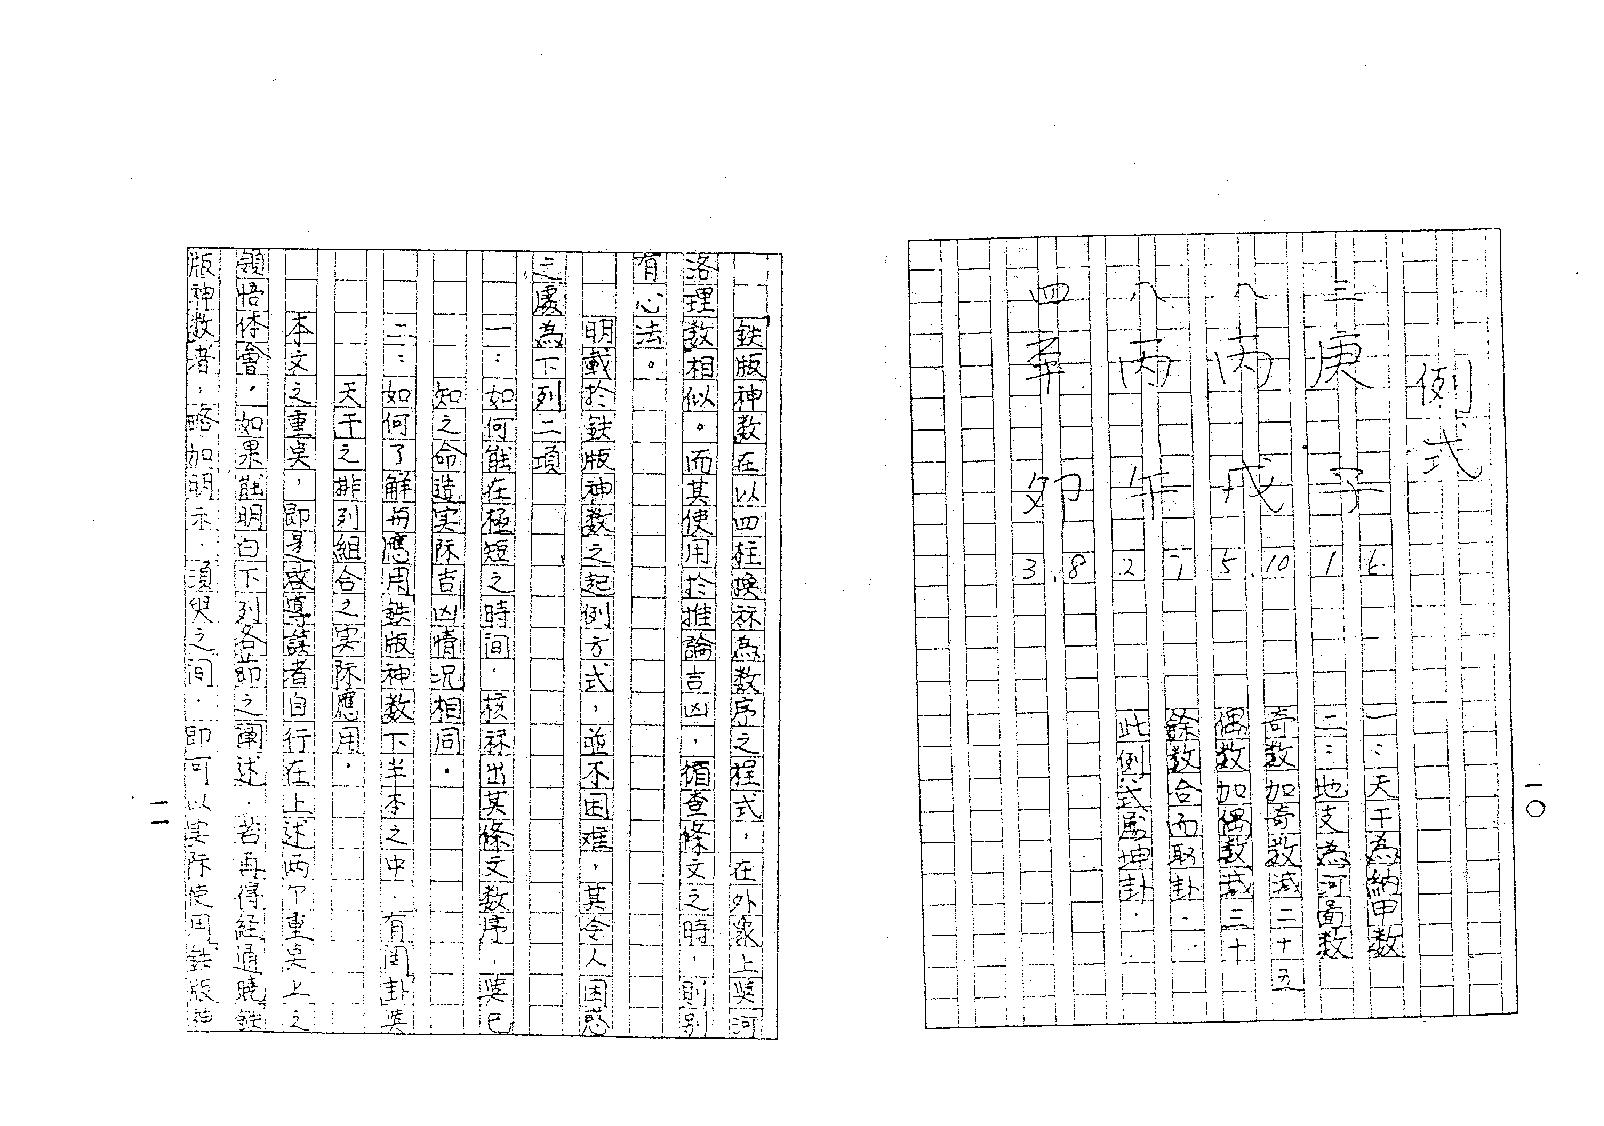 例式
三庚子 6 1
八丙戌 10 5
八丙午 7 2
四辛卯 8 3
一：天干為納甲数
二：地支為河啚数
奇数加奇数減二十五
偶数加偶数減三十
餘数合而取卦．
此例式為坤卦．
一〇
鉄版神数在以四柱換祘為数序之程式，在外象上與河
洛理数相似。而其使用於推論吉凶，循查條文之時，則別
有心法。
明載於鉄版神数之起例方式，並不困难，其令人困惑
之處為下列二項
一：如何能在極短之時间．核祘出其條文数序．與已
知之命造实际吉凶情况相同．
二：如何了解再應用鉄版神数下半本之中．有関卦與
天干之排列組合之实际應用．
本文之重桌，即是啟導讀者自行在上述两个重桌上之
領悟体會，如果能明白下列各節之闡述．若再得経通曉鉄
版神数者，略加明示．須臾之间．即可以实际使用鉄版神
一一